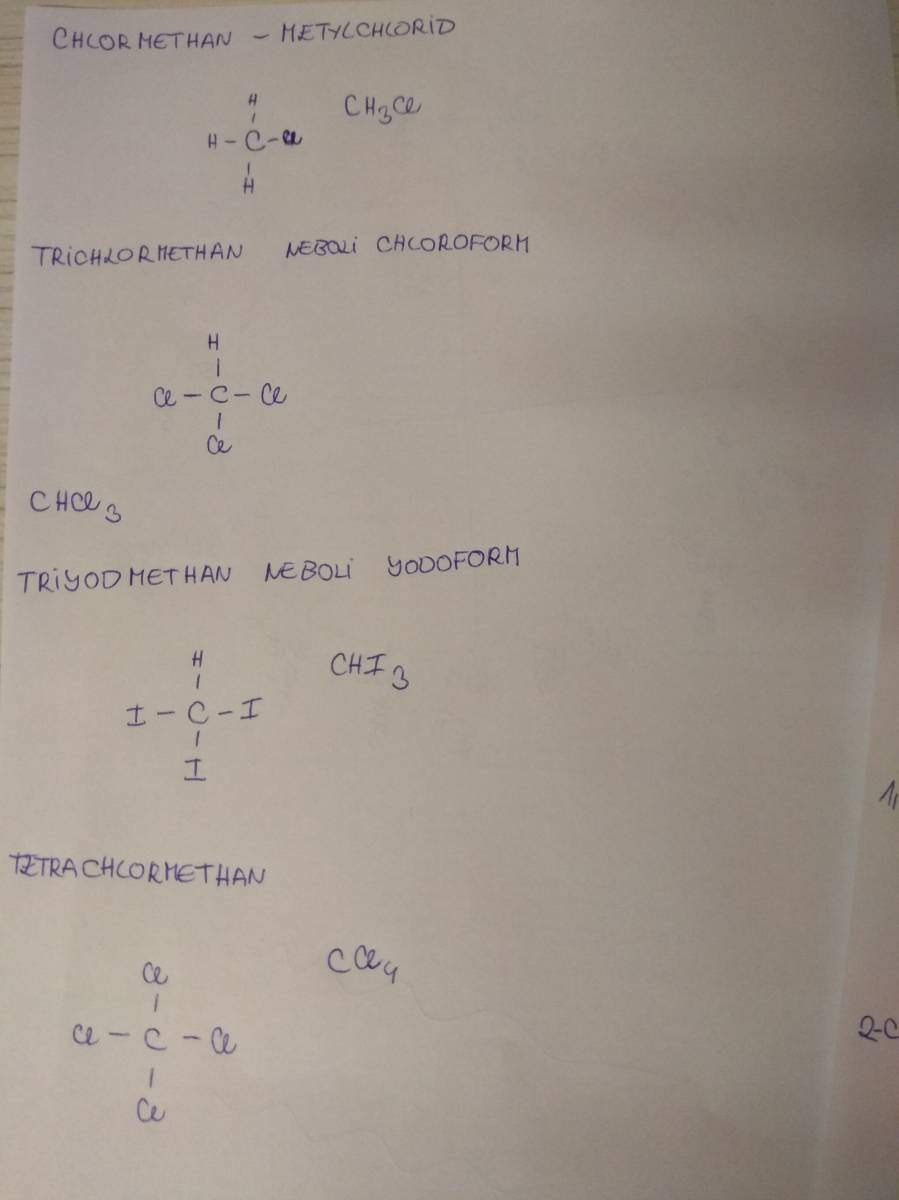 CHLORMETHAN – METYLCHLORID
H CH3Cl
H – C – Cl
H
TRICHLORMETHAN NEBOLI CHLOROFORM
H
Cl – C – Cl
Cl
CHCl3
TRIYODMETHAN NEBOLI YODOFORM
H CHI3
I – C – I
I
1,
TETRACHLORMETHAN
Cl CCl4
Cl – C – Cl
2-C
Cl